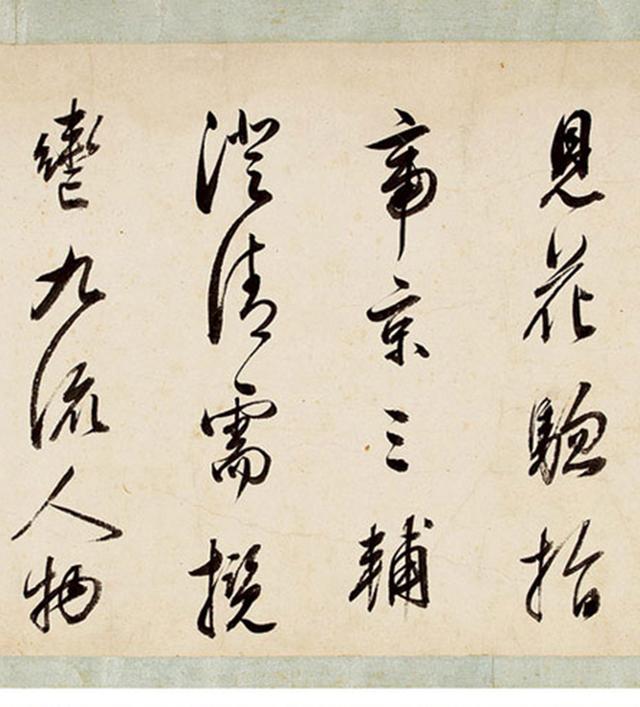 見花驄指
帝京三輔
澄清需攬
轡九流人物